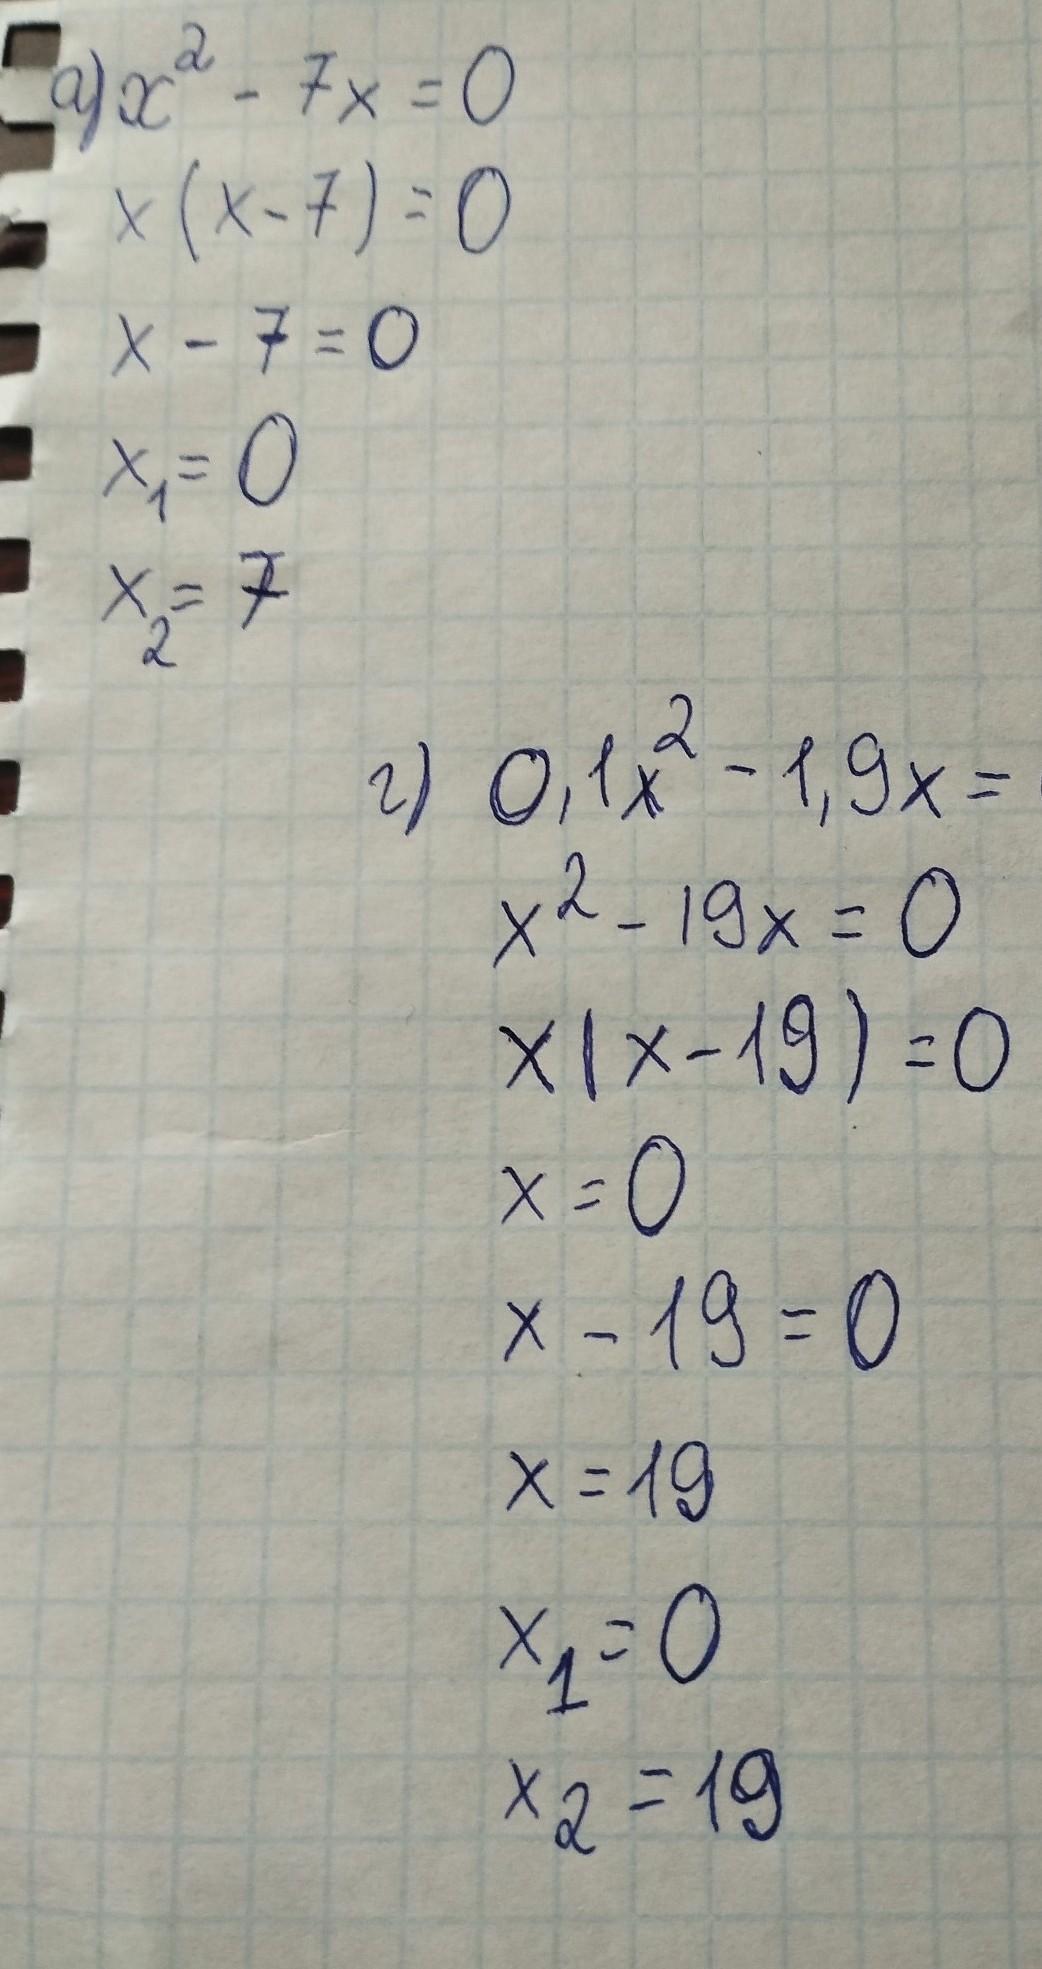 а) x² - 7x = 0
x(x-7) = 0
x - 7 = 0
x₁ = 0
x₂ = 7
г) 0,1x² - 1,9x =
x² - 19x = 0
x(x-19) = 0
x = 0
x - 19 = 0
x = 19
x₁ = 0
x₂ = 19